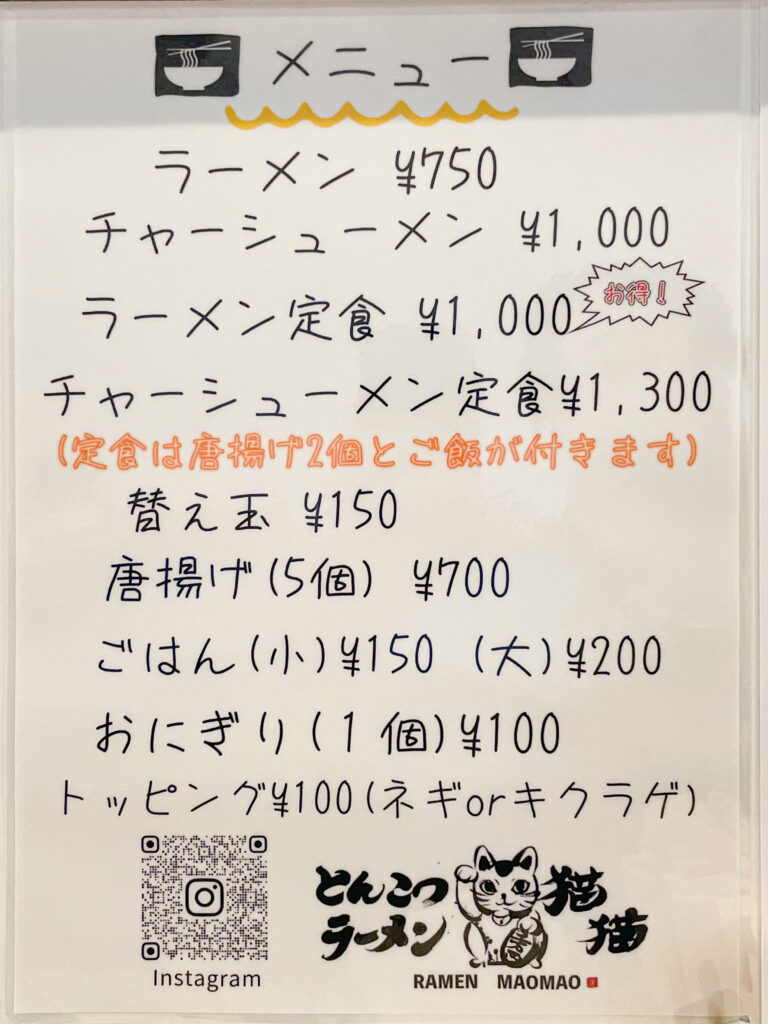 メニュー
ラーメン ¥750
チャーシューメン ¥1,000
ラーメン定食 ¥1,000
お得!
チャーシューメン定食¥1,300
(定食は唐揚げ2個とご飯が付きます)
替え玉 ¥150
唐揚げ(5個) ¥700
ごはん(小)¥150 (大)¥200
おにぎり(1個)¥100
トッピング¥100(ネギorキクラゲ)
Instagram
とんこつ
ラーメン
猫猫
RAMEN MAOMAO